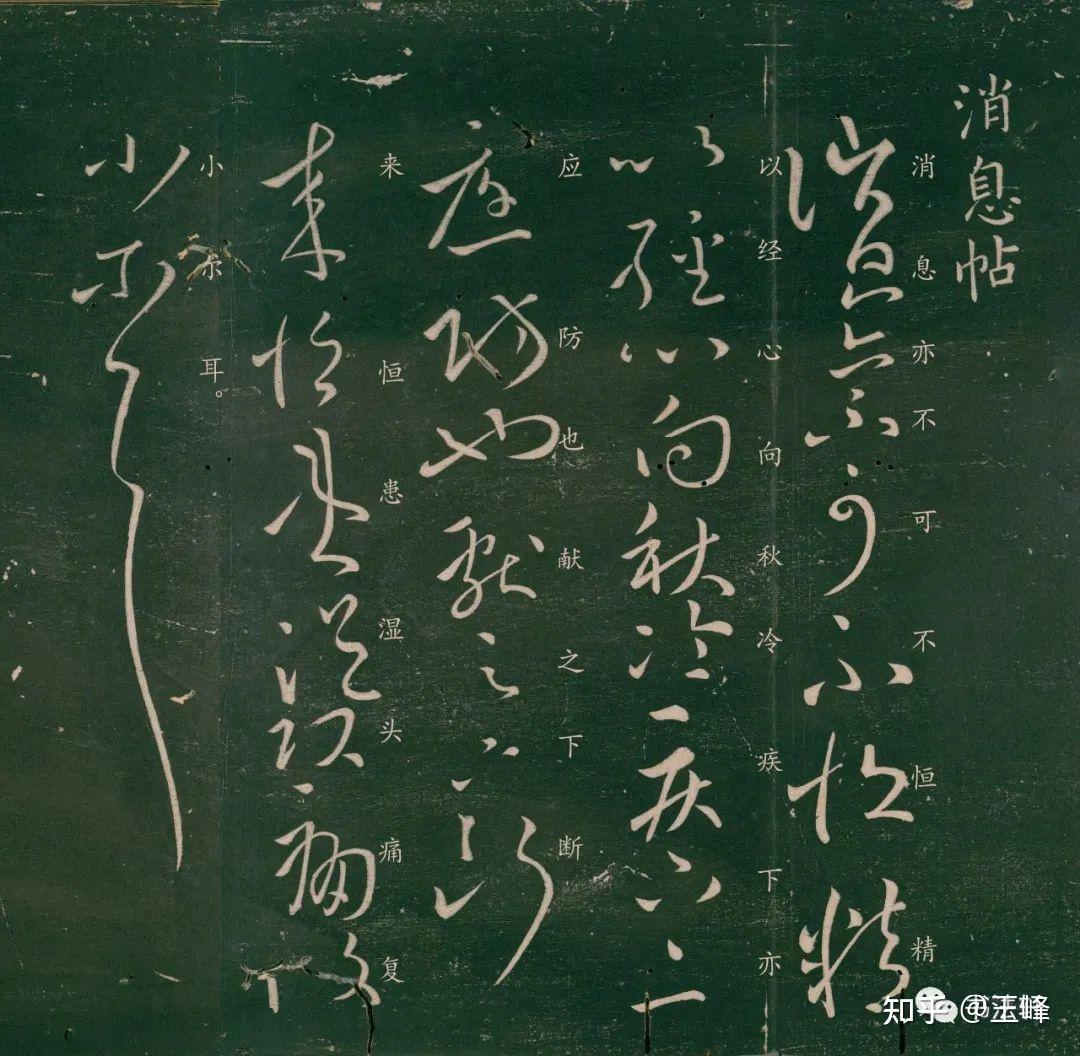 消息帖
消息亦不可不恒精
以经心向秋冷疾下亦
应防也献之下断
来恒患湿头痛复
小尔耳。
知乎